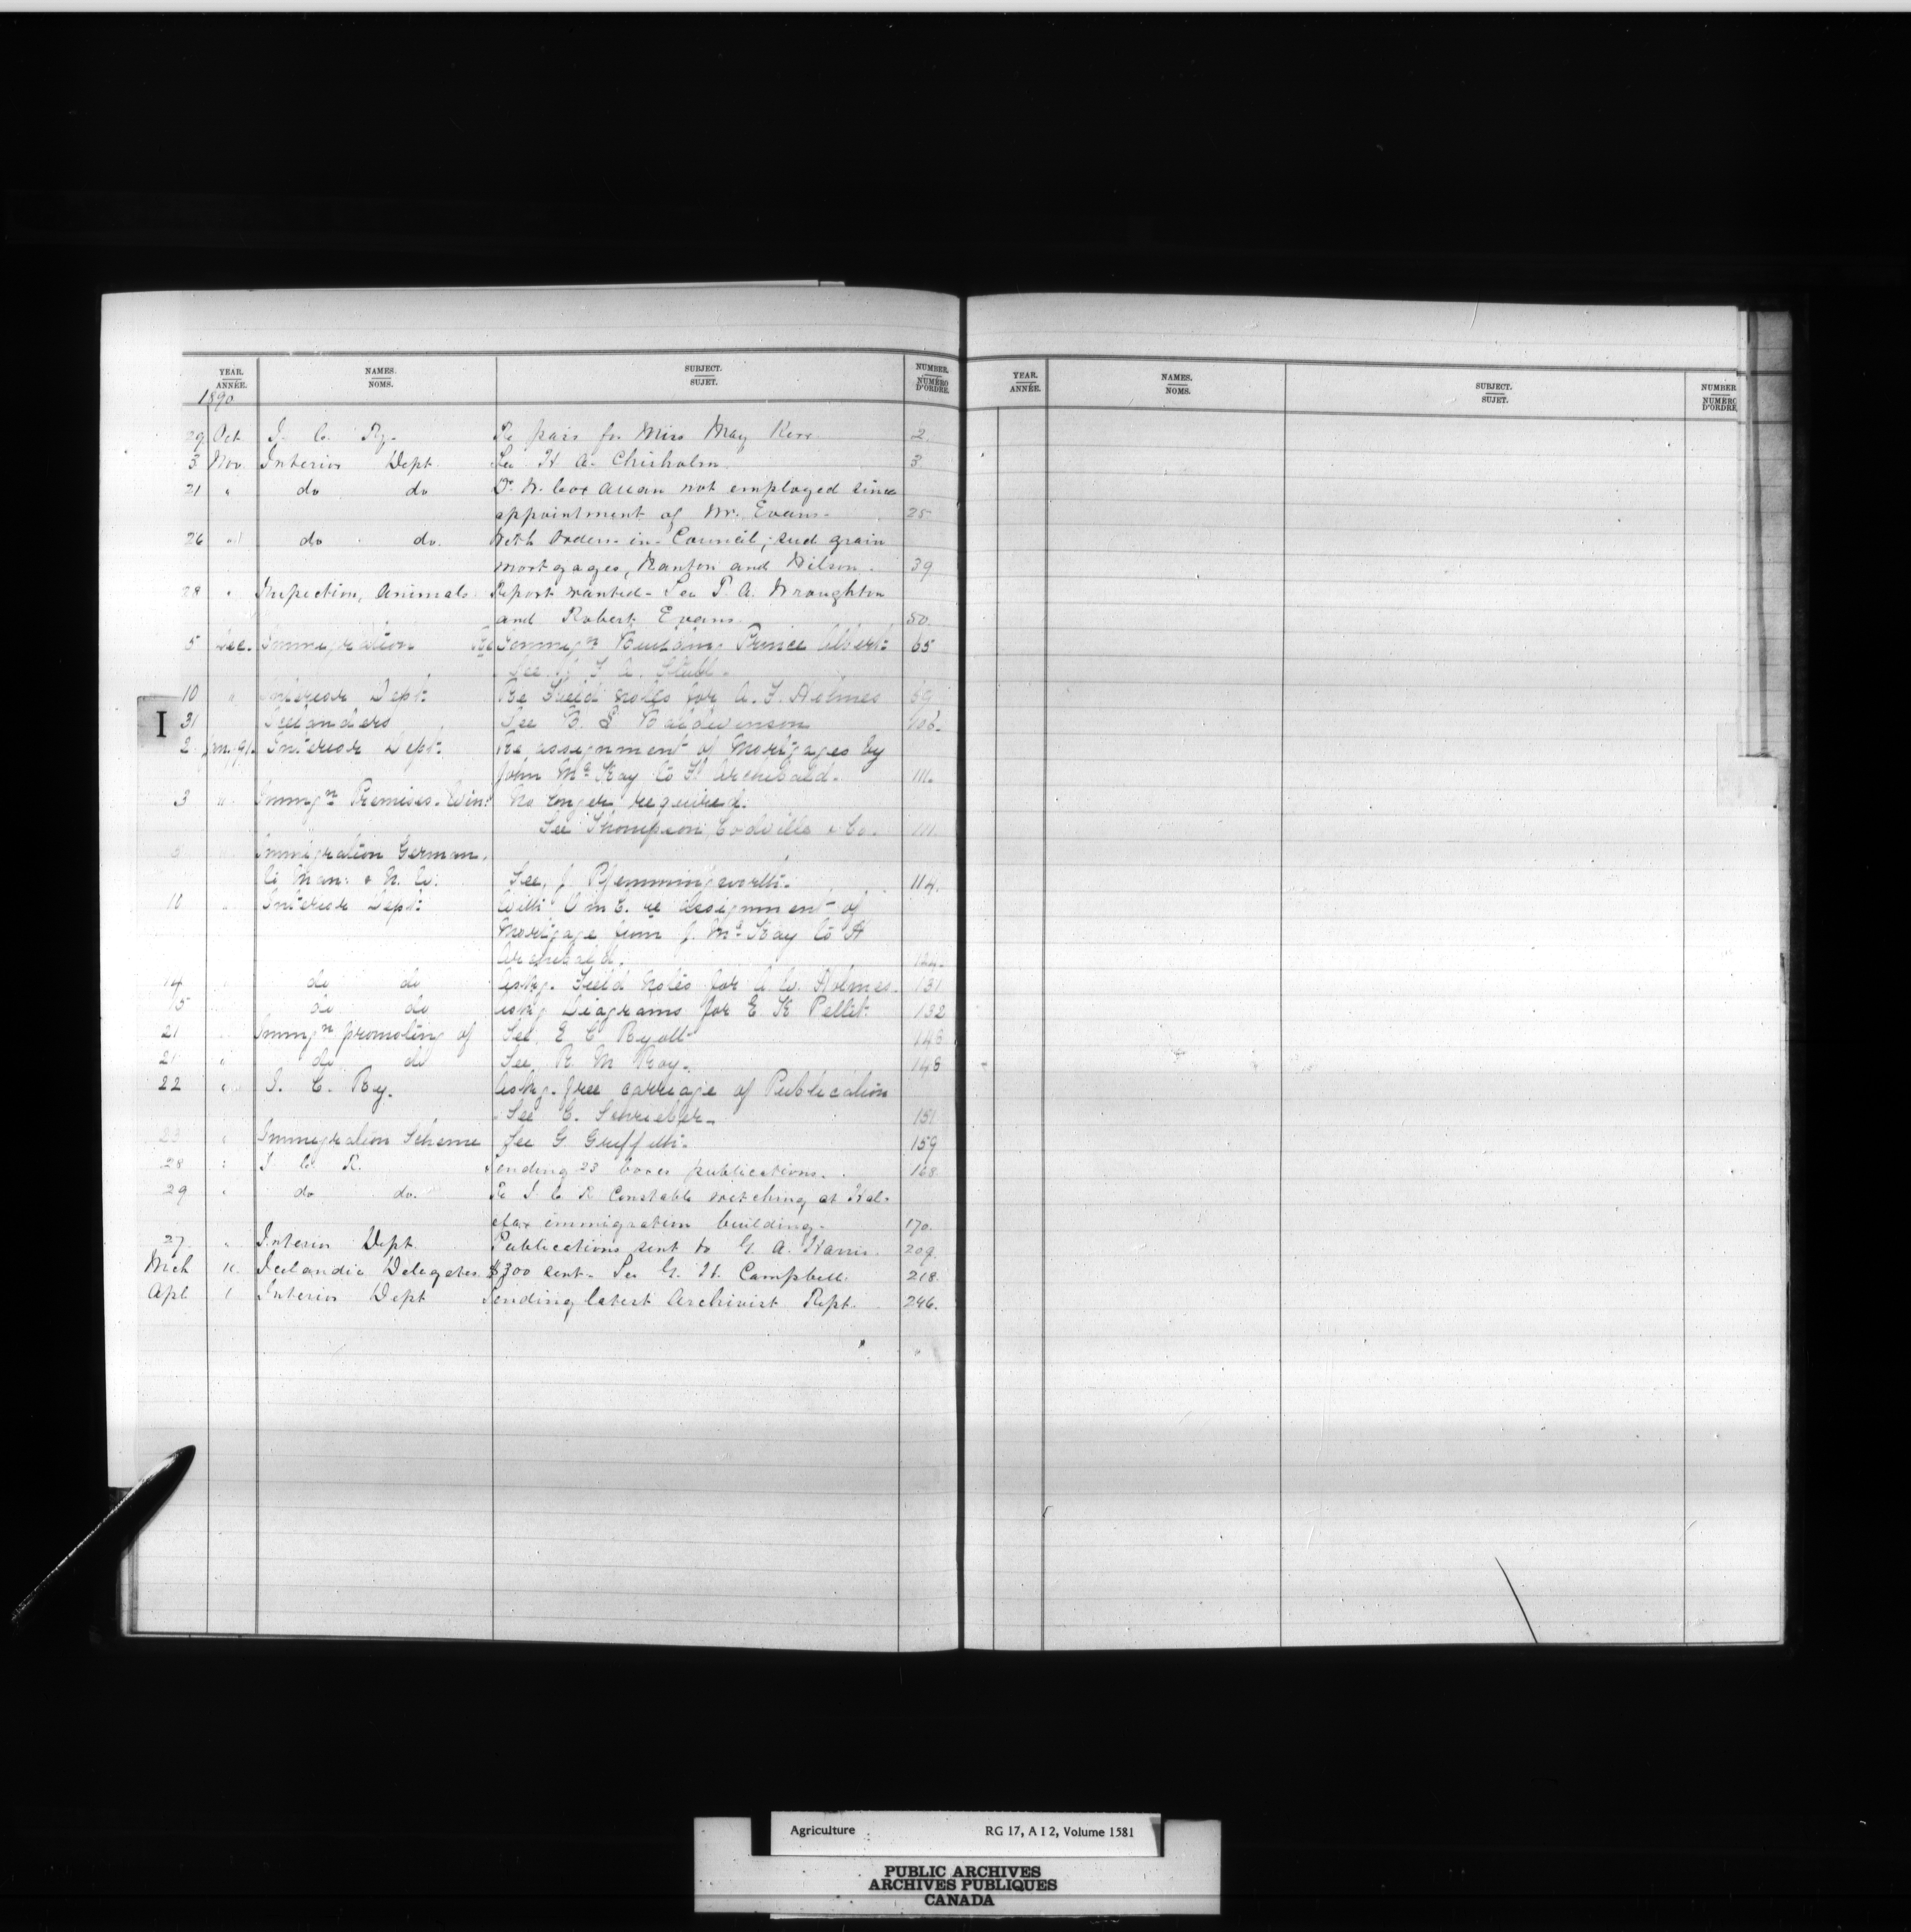 YEAR. NAMES. SUBJECT. NUMBER.
ANNÉE. NOMS. SUJET. NUMÉRO D'ORDRE.
1890
29 Oct I. C. Ry. Re pass for Miss May Kerr 2.
3 Nov Interior Dept. See H A. Chisholm 3
21 " do do Dr. W. Cox Allan not employed since
appointment of Mr. Evans- 25
26 " do do. With Orders-in-Council, seed grain
mortgages, Nanton and Wilson. 39
28 " Inspection, Animals. Report wanted- See T. A. Wroughton
and Robert Evans. 50.
5 Dec. Immigration Re Immign Building Prince Albert: 65
See
10 " Interior Dept: Re Field Notes for A. F. Holmes 69
31 Icelanders See B. L Baldwinson 106.
2 Jany 91. Interior Dept: Re assignment of Mortgages by
John McKay to H Archibald. 111.
3 " Immign Premises. Win: No longer required.
See Thompson, Codville & Co. 111.
5 " Immigration German,
to Man: & N. W. See, J. 114.
10 " Interior Dept: With O in C. re assignment of
Mortgage from J. McKay to H
Archibald. 124.
14 " do do Askg. Field Notes for A. W. Holmes. 131
15 do do Askg Diagrams for E. K Pellet 132
21 " Immign promoting of See, E C Ryott 146
21 " do do See R. M Roy. 148
22 " I. C. Ry. Askg. free carriage of Publication
See C. Schreiber. 151
23 " Immigration Scheme See G Griffith. 159
28 " I C R. Sending 23 boxes publications. 168
29 " do do. Re I C R Constable watching at Hal-
ifax immigration building. 170.
27. " Interior Dept. Publications sent to G. A. Harris. 209.
Mch 11. Icelandic Delegates. $300 sent. See G. H. Campbell. 218.
Apl. 1 Interior Dept Sending latest Archivist Rept. 246.
I
YEAR. NAMES. SUBJECT. NUMBER
ANNÉE. NOMS. SUJET. NUMÉRO D'ORDRE.
Agriculture RG 17, A I 2, Volume 1581
PUBLIC ARCHIVES
ARCHIVES PUBLIQUES
CANADA